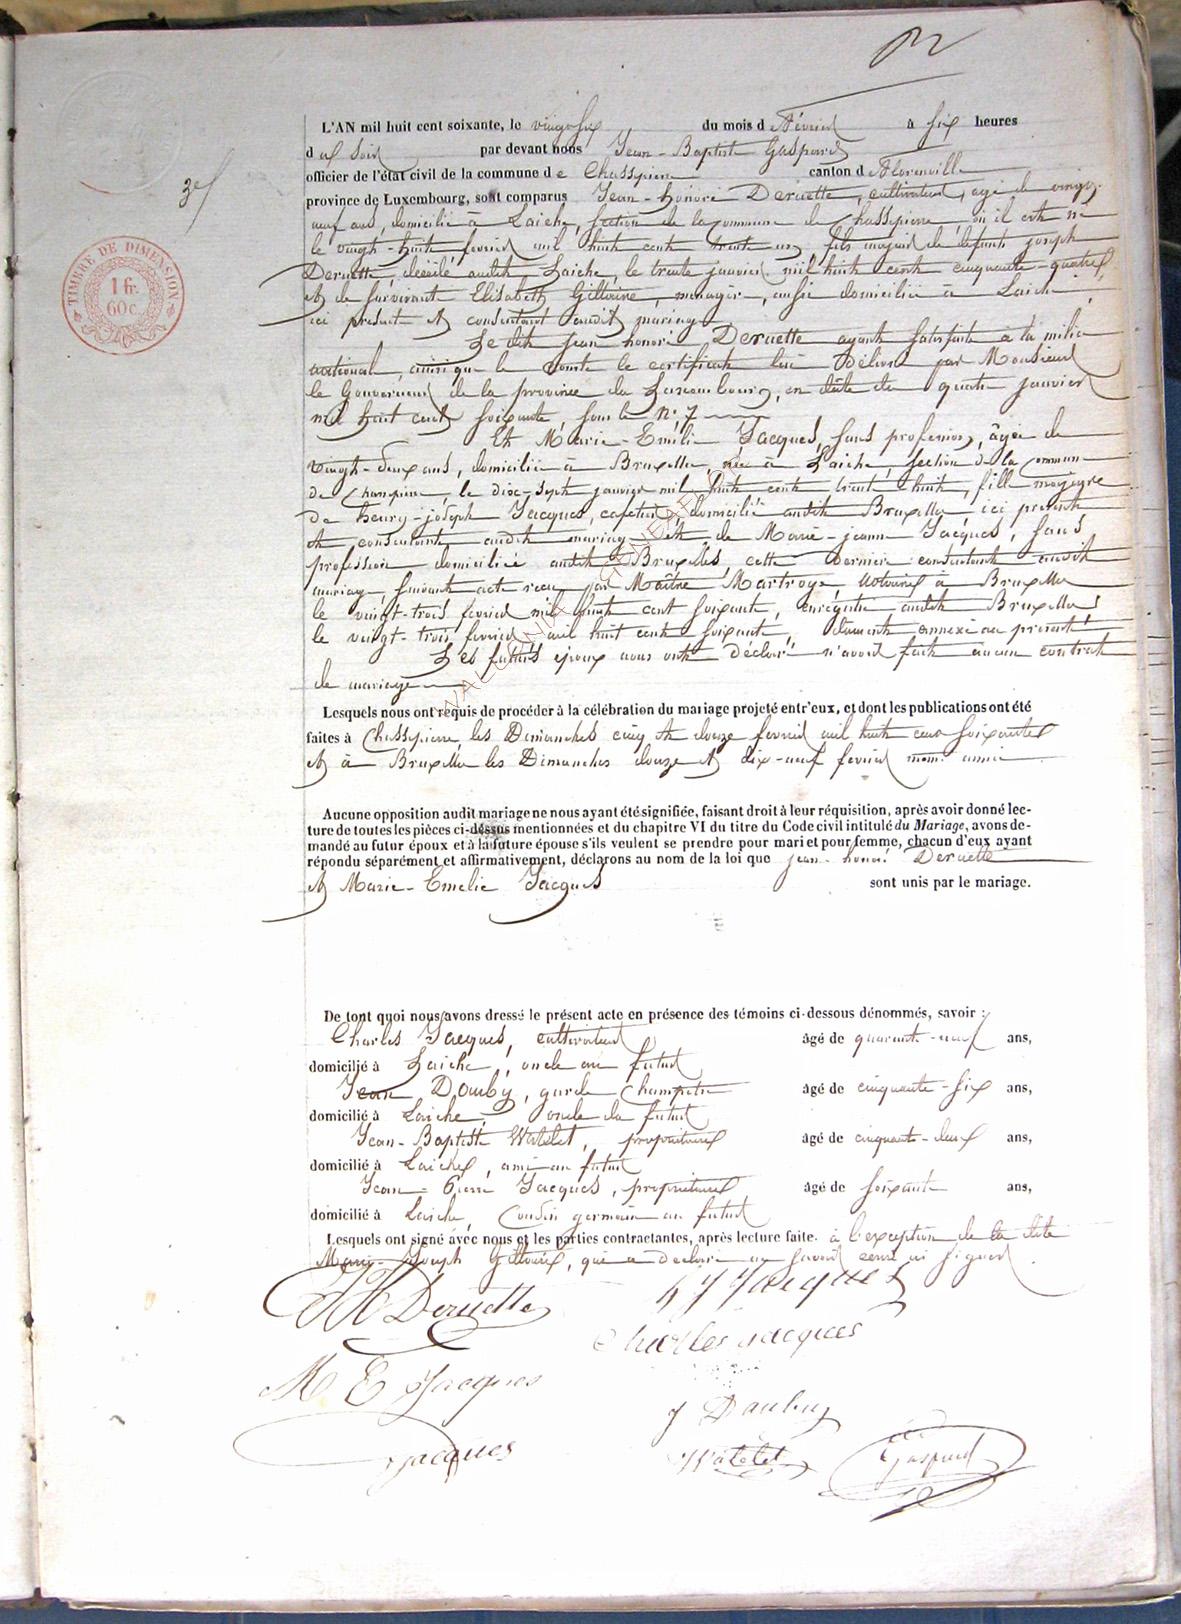 3e
TIMBRE DE DIMENSION
1 fr.
60 c.
L'AN mil huit cent soixante, le vingt six du mois de Février à six heures
du soir par devant nous Jean-Baptiste Gaspard
officier de l'état civil de la commune de Chassepierre canton de Florenville
province de Luxembourg, sont comparus Jean-honoré Deruette, cultivateur, agé de vingt
neuf ans, domicilié à Laiche, section de la commune de Chassepierre, où il est né
le vingt-huit février mil huit cent trente un, fils majeur de defunt joseph
Deruette, décédé audit Laiche, le trente janvier mil huit cent cinquante-quatre
et de survivante Elisabeth Gilloine, menagère, aussi domiciliée à Laiche
ici présente et consentant audit mariage
Le dit jean honoré Deruette ayant satisfait à la milice
national, ainsi que le conste le certificat lui délivré par Monsieur
le Gouverneur de la province de Luxembourg, en date du quatre janvier
mil huit cent soixante, sous le N° 7
Et Marie-Emélie Jacques, sans profession, âgée de
vingt-deux ans, domiciliée à Bruxelles, née à Laiche, section de la commune
de Chassepierre, le dix-sept janvier mil huit cent trente huit, fille majeure
de henry-joseph Jacques, cafetier domicilié audit Bruxelles, ici présent
et consentant audit mariage et de Marie-jeanne Jacques, sans
profession domiciliée audit Bruxelles cette dernière consentante audit
mariage, suivant acte reçu par Maître Martroye, notaire à Bruxelles
le vingt-trois fevrier mil huit cent soixante, enregistré audit Bruxelles
le vingt-trois fevrier mil huit cent soixante, dument annexé au présent
Les futurs époux nous ont déclaré n'avoir fait aucun contrat
de mariage
WALLONIA GENEAFLOR
Lesquels nous ont requis de procéder à la célébration du mariage projeté entr'eux, et dont les publications ont été
faites à Chassepierre, les Dimanches cinq et douze fevrier mil huit cent soixante
et à Bruxelles les Dimanches douze et dix-neuf fevrier même année
Aucune opposition audit mariage ne nous ayant été signifiée, faisant droit à leur réquisition, après avoir donné lec-
ture de toutes les pièces ci-dessus mentionnées et du chapitre VI du titre du Code civil intitulé du Mariage, avons de-
mandé au futur époux et à la future épouse s'ils veulent se prendre pour mari et pour femme, chacun d'eux ayant
répondu séparément et affirmativement, déclarons au nom de la loi que jean-honoré Deruette
et Marie-Emelie Jacques sont unis par le mariage.
De tout quoi nous avons dressé le présent acte en présence des témoins ci-dessous dénommés, savoir :
Charles Jacques, cultivateur âgé de quarante-neuf ans,
domicilié à Laiche, oncle au futur
Jean Dauby, garde champêtre âgé de cinquante-six ans,
domicilié à Laiche, oncle du futur
Jean-Baptiste Watelet, propriétaire âgé de cinquante-deux ans,
domicilié à Laiche, ami au futur
Jean-Pierre Jacques, propriétaire âgé de soixante ans,
domicilié à Laiche, cousin germain au futur
Lesquels ont signé avec nous et les parties contractantes, après lecture faite. à l'exception de la dite
Marie-Joseph Gilloine, qui a déclaré ne savoir écrire ni signer
JH Deruette
h J Jacques
Charles jacques
M E Jacques
J Dauby
Jacques
Watelet
Gaspard